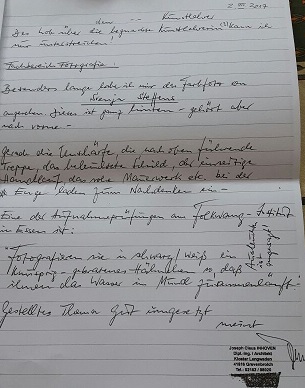 2. VIII. 2017
den Kunstlehrer
Das Lob über die begnadete Kunstlehrerin kann ich
nur unterstreichen!
Fachbereich Fotografie:
Besonders lange habe ich mir das Farbfoto von
Svenja Steffens
angesehen. Dieses ist ganz hinten - gehört aber
nach vorne -
Gerade die Unschärfe, die nach oben führende
Treppe, das beleuchtete Schild, der einseitige
Handlauf, das rohe Mauerwerk etc. bei der
Enge laden zum Nachdenken ein -
Eine der Aufnahmeprüfungen am Folkwang-Institut
in Essen ist:
"Fotografieren sie in schwarz/weiß ein
knusprig-gebratenes Hähnchen so, daß
ihnen das Wasser im Mund zusammenläuft"
Gestelltes Thema gut umgesetzt
meint
Joseph Claus INHOVEN
Dipl. Ing. / Architekt
Kloster Langwaden
41516 Grevenbroich
Tel.: 02182 /